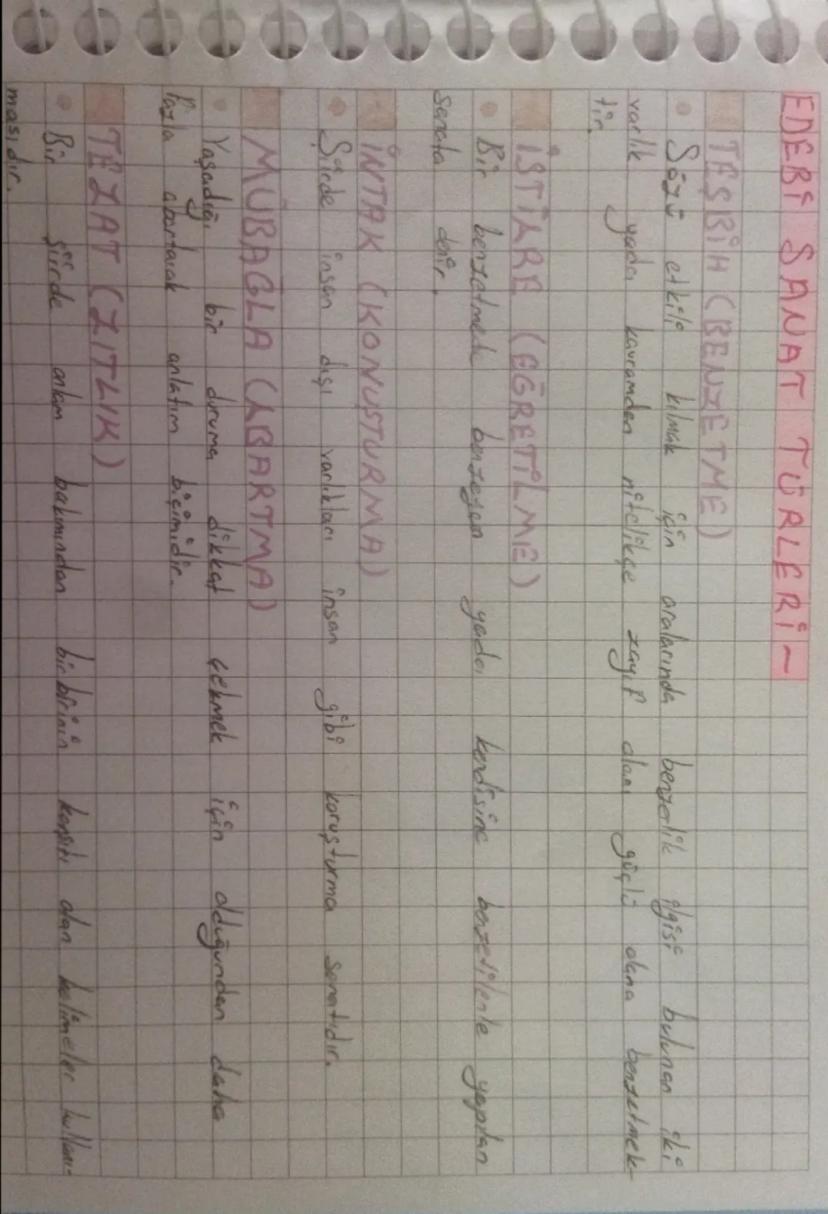 EDEBİ SANAT TÜRLERİ~
TEŞBİH (BENZETME)
Sözü etkili kılmak için aralarında benzerlik ilgisi bulunan iki
varlık yada kavramdan nitelikçe zayıf olanı güçlü olana benzetmek-
tir.
İSTİARE (EĞRETİLME)
Bir benzetmede benzeyen yada kendisine benzetilenle yapılan
sanata denir.
İNTAK (KONUŞTURMA)
Şiirde insan dışı varlıkları insan gibi konuşturma sanatıdır.
MÜBAĞLA (ABARTMA)
Yaşadığı bir duruma dikkat çekmek için olduğundan daha
fazla abartarak anlatım biçimidir.
TEZAT (ZITLIK)
Bir şiirde anlam bakımından birbirinin karşıtı olan kelimeler kullanı-
masıdır.